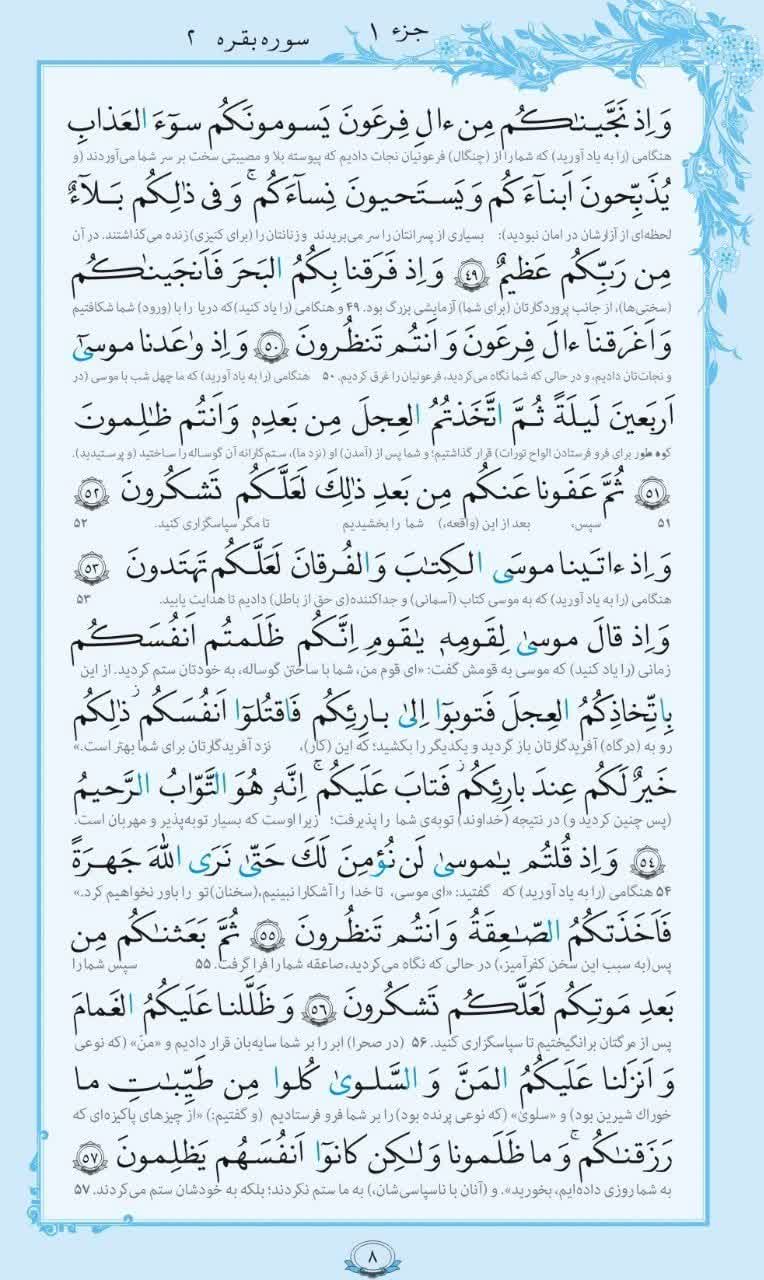 جزء ۱
سوره بقره ۲
وَ اِذ نَجَّينٰكُم مِن ءالِ فِرعَونَ يَسومونَكُم سوٓءَ العَذابِ
هنگامی (را به یاد آورید) که شما را از (چنگال) فرعونیان نجات دادیم که پیوسته بلا و مصیبتی سخت بر سر شما می‌آوردند (و
يُذَبِّحونَ اَبنآءَكُم وَ يَستَحيونَ نِسآءَكُم ۚ وَ فى ذٰلِكُم بَلآءٌ
لحظه‌ای از آزارشان در امان نبودید): بسیاری از پسرانتان را سر می‌بریدند و زنانتان را (برای کنیزی) زنده می‌گذاشتند. در آن
مِن رَبِّكُم عَظيمٌ ﴿۴۹﴾ وَ اِذ فَرَقنا بِكُمُ البَحرَ فَاَنجَينٰكُم
(سختی‌ها)، از جانب پروردگارتان (برای شما) آزمایشی بزرگ بود. ۴۹ و هنگامی (را یاد کنید) که دریا را با (ورود) شما شکافتیم
وَ اَغرَقنآ ءالَ فِرعَونَ وَ اَنتُم تَنظُرونَ ﴿۵۰﴾ وَ اِذ وٰعَدنا موسىٰٓ
و نجات‌تان دادیم، و در حالی که شما نگاه می‌کردید، فرعونیان را غرق کردیم. ۵۰ هنگامی (را به یاد آورید) که ما چهل شب با موسی (در
اَربَعينَ لَيلَةً ثُمَّ اتَّخَذتُمُ العِجلَ مِن بَعدِهٖ وَ اَنتُم ظٰلِمونَ
کوه طور برای فرو فرستادن الواح تورات) قرار گذاشتیم؛ و شما پس از (آمدن) او (نزد ما)، ستم‌کارانه آن گوساله را ساختید (و پرستیدید).
﴿۵۱﴾ ثُمَّ عَفَونا عَنكُم مِن بَعدِ ذٰلِكَ لَعَلَّكُم تَشكُرونَ ﴿۵۲﴾
۵۱ سپس، بعد از این (واقعه،) شما را بخشیدیم تا مگر سپاسگزاری کنید. ۵۲
وَ اِذ ءاتَينا موسَى الكِتٰبَ وَ الفُرقانَ لَعَلَّكُم تَهتَدونَ ﴿۵۳﴾
هنگامی (را به یاد آورید) که به موسی کتاب (آسمانی) و جداکننده(ی حق از باطل) دادیم تا هدایت یابید. ۵۳
وَ اِذ قالَ موسىٰ لِقَومِهٖ يٰقَومِ اِنَّكُم ظَلَمتُم اَنفُسَكُم
زمانی (را یاد کنید) که موسی به قومش گفت: «ای قوم من، شما با ساختن گوساله، به خودتان ستم کردید. از این
بِاتِّخاذِكُمُ العِجلَ فَتوبوٓا اِلىٰ بارِئِكُم فَاقتُلوٓا اَنفُسَكُم ۥ ذٰلِكُم
رو به (درگاه) آفریدگارتان باز گردید و یکدیگر را بکشید؛ که این (کار)، نزد آفریدگارتان برای شما بهتر است.»
خَيرٌ لَكُم عِندَ بارِئِكُم ۥ فَتابَ عَلَيكُم ۚ اِنَّهٗ هُوَ التَّوّابُ الرَّحيمُ
(پس چنین کردید و) در نتیجه (خداوند) توبه‌ی شما را پذیرفت؛ زیرا اوست که بسیار توبه‌پذیر و مهربان است.
﴿۵۴﴾ وَ اِذ قُلتُم يٰموسىٰ لَن نُؤمِنَ لَكَ حَتّىٰ نَرَى اللّٰهَ جَهرَةً
۵۴ هنگامی (را به یاد آورید) که گفتید: «ای موسی، تا خدا را آشکارا نبینیم، (سخنان) تو را باور نخواهیم کرد.»
فَاَخَذَتكُمُ الصّٰعِقَةُ وَ اَنتُم تَنظُرونَ ﴿۵۵﴾ ثُمَّ بَعَثنٰكُم مِن
پس (به سبب این سخن کفرآمیز،) در حالی که نگاه می‌کردید، صاعقه شما را فرا گرفت. ۵۵ سپس شما را
بَعدِ مَوتِكُم لَعَلَّكُم تَشكُرونَ ﴿۵۶﴾ وَ ظَلَّلنا عَلَيكُمُ الغَمامَ
پس از مرگتان برانگیختیم تا سپاسگزاری کنید. ۵۶ (در صحرا) ابر را بر شما سایه‌بان قرار دادیم و «منّ» (که نوعی
وَ اَنزَلنا عَلَيكُمُ المَنَّ وَ السَّلوىٰ كُلوا مِن طَيِّبٰتِ ما
خوراک شیرین بود) و «سلوی» (که نوعی پرنده بود) را بر شما فرو فرستادیم (و گفتیم:) «از چیزهای پاکیزه‌ای که
رَزَقنٰكُم ۚ وَ ما ظَلَمونا وَ لٰكِن كانوٓا اَنفُسَهُم يَظلِمونَ ﴿۵۷﴾
به شما روزی داده‌ایم، بخورید». و (آنان با ناسپاسی‌شان،) به ما ستم نکردند؛ بلکه به خودشان ستم می‌کردند. ۵۷
۸